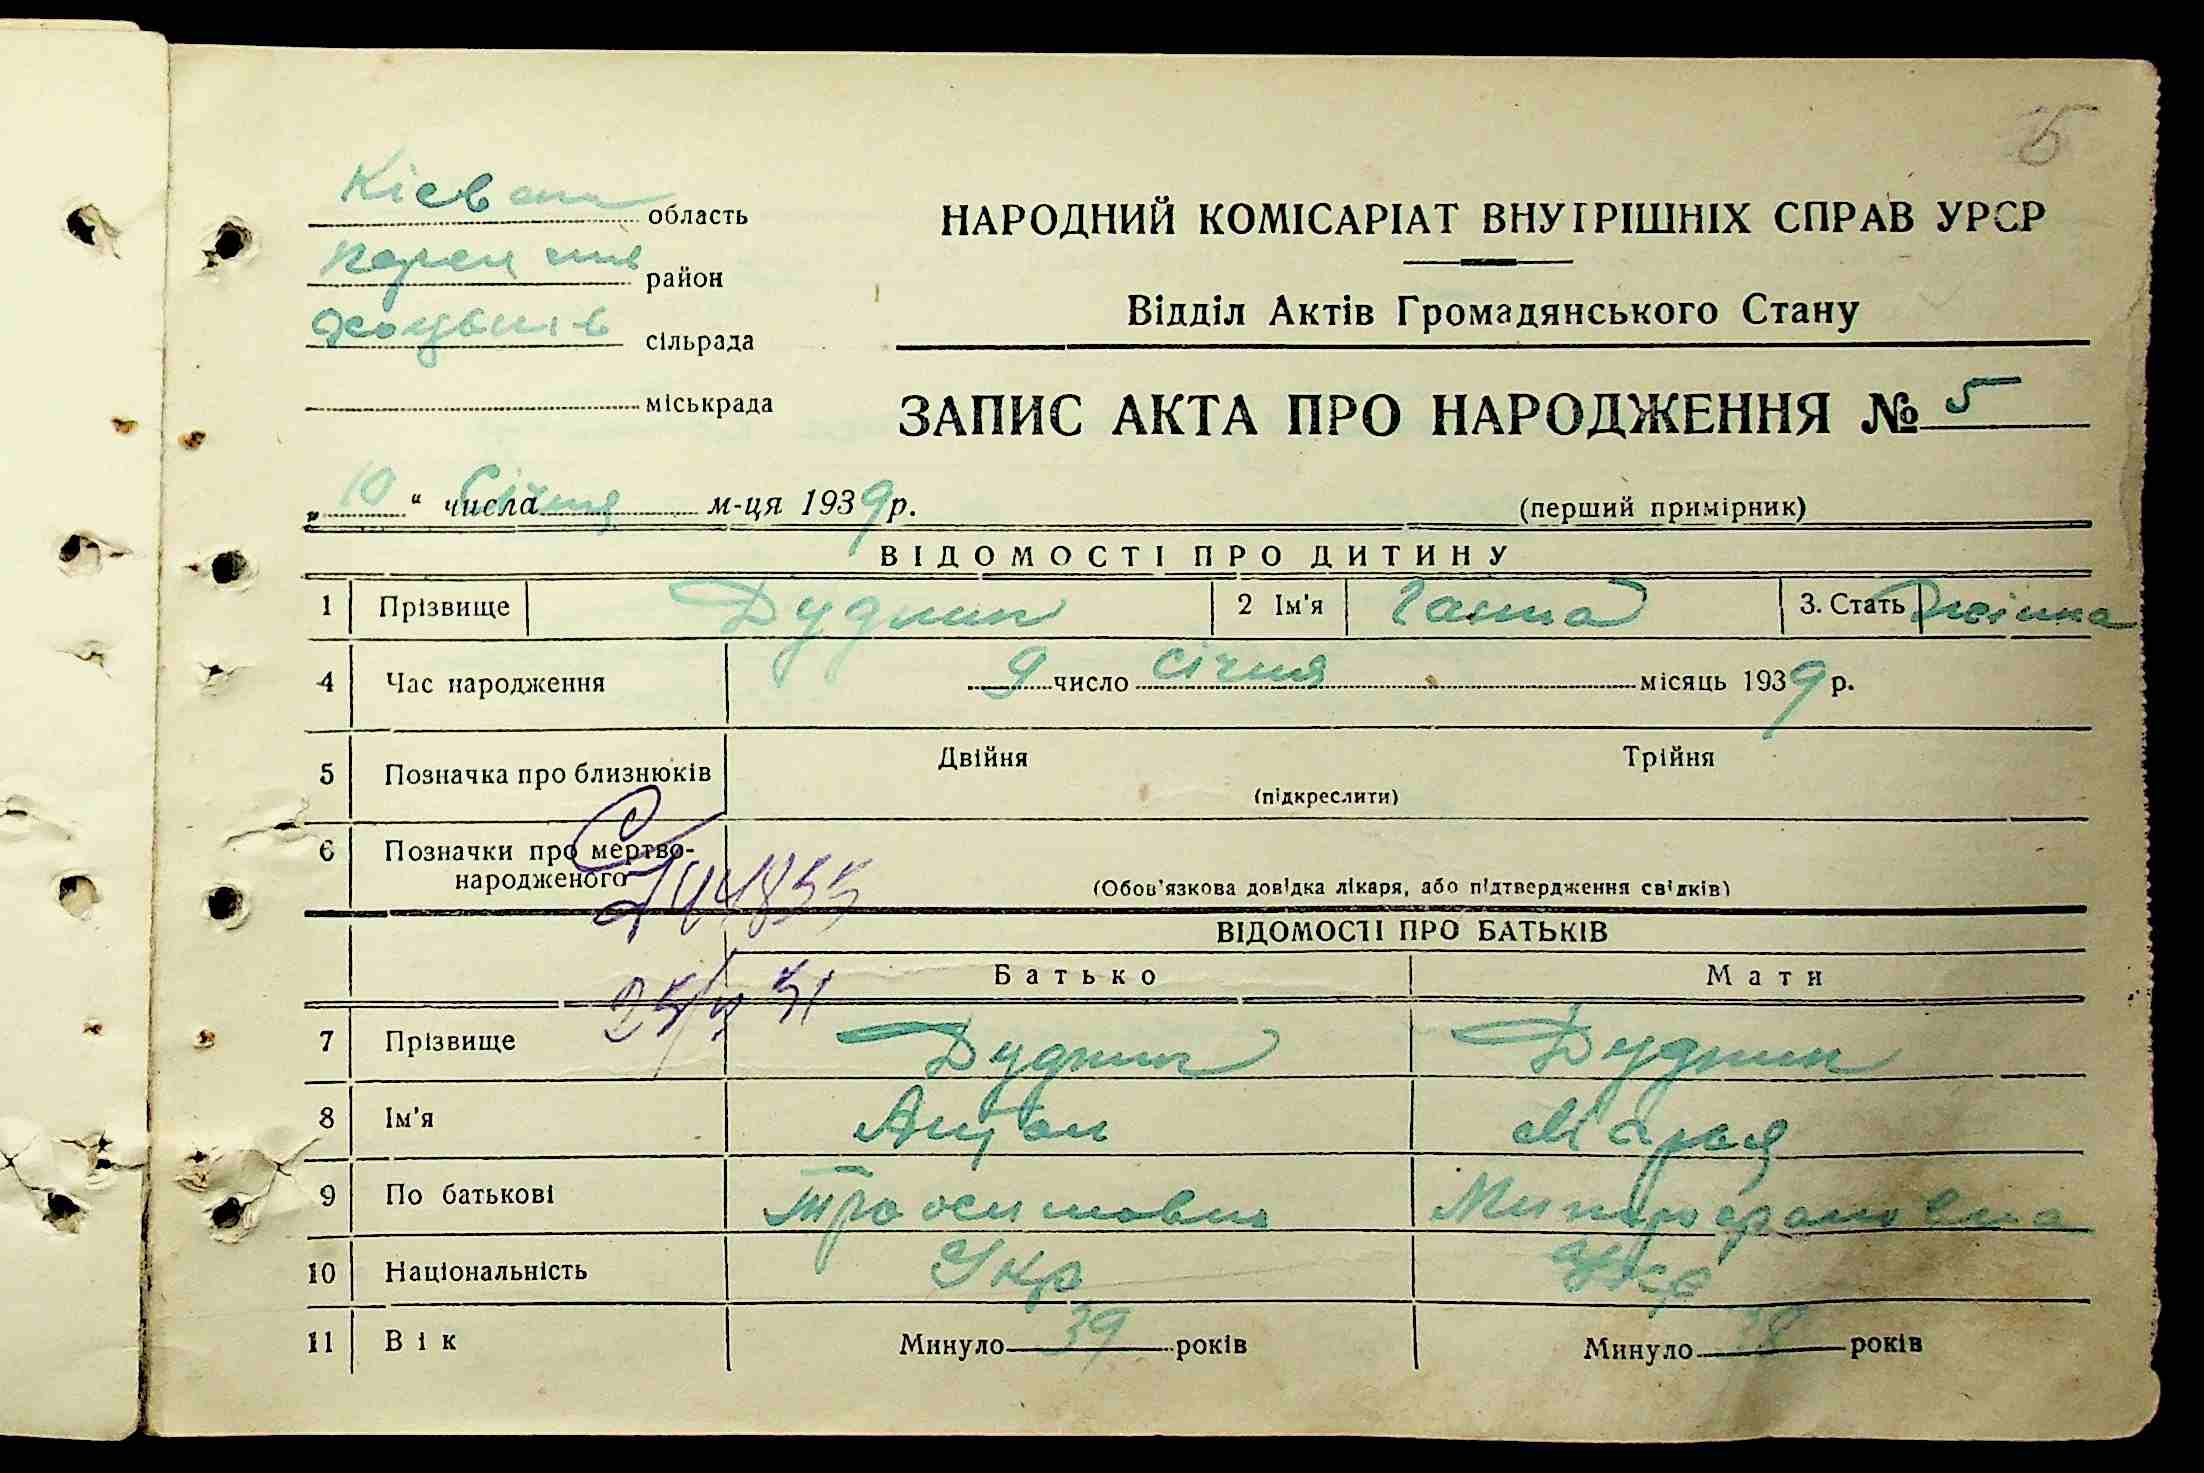 5
Кієвси область
НАРОДНИЙ КОМІСАРІАТ ВНУТРІШНІХ СПРАВ УРСР
район
Відділ Актів Громадянського Стану
сільрада
міськрада
ЗАПИС АКТА ПРО НАРОДЖЕННЯ № 5
„ 10 “ числа Січня м-ця 1939 р. (перший примірник)
ВІДОМОСТІ ПРО ДИТИНУ
1 Прізвище Дудник 2 Ім'я Ганна 3. Стать жінка
4 Час народження 9 число січня місяць 1939 р.
5 Позначка про близнюків Двійня Трійня
(підкреслити)
6 Позначки про мертво-
народженого (Обов'язкова довідка лікаря, або підтвердження свідків)
ВІДОМОСТІ ПРО БАТЬКІВ
Батько Мати
7 Прізвище Дудник Дудник
8 Ім'я Антон Марья
9 По батькові
10 Національність Укр Укр
11 Вік Минуло 39 років Минуло 38 років